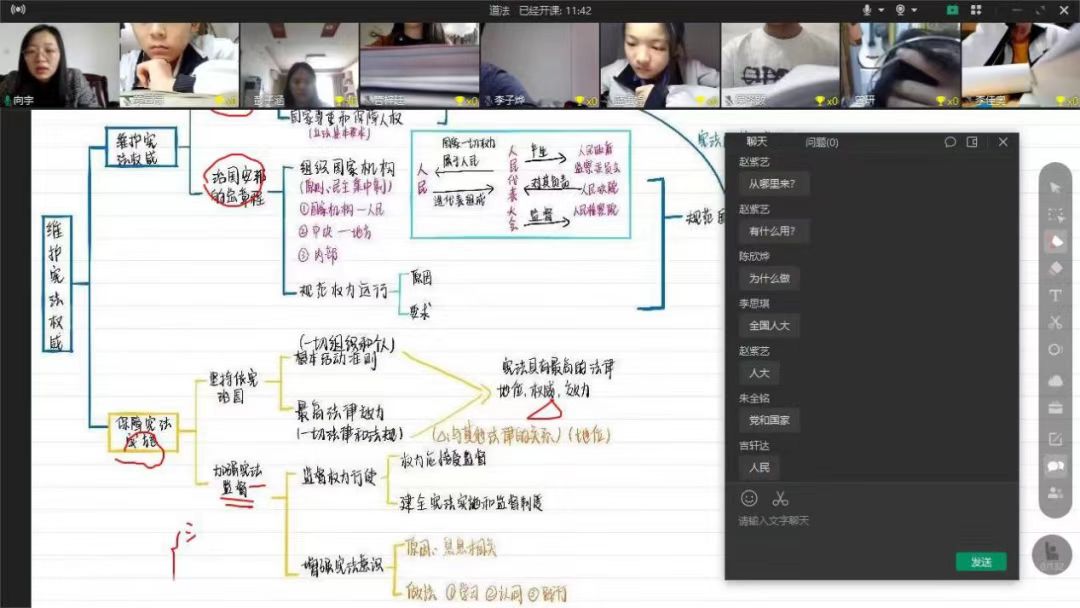 道法 已经开课: 11:42
向宇
李子烨
李佳奥
x0
x0
x0
x0
x0
x0
x0
国家尊重和保障人权
(立法基本要求)
维护宪
法权威
治国安邦
的总章程
组织国家机构
(原则:民主集中制)
①国家机构一人民
②中央一地方
③内部
国家一切权力
属于人民
人民
选代表组成
人民代表大会
产生
对其负责
监督
人民政府
监察委员会
人民法院
人民检察院
规范权力运行
原因
要求
维护宪法权威
保障宪法
实施
坚持依宪
治国
(一切组织和个人)
根本活动准则
最高法律效力
(一切法律和法规)
宪法具有最高的法律
地位、权威、效力
(△与其他法律的关系)(地位)
加强宪法
监督
监督权力行使
权力应接受监督
健全宪法实施和监督制度
增强宪法意识
原因:息息相关
做法 ①学习 ②认同 ③践行
聊天
问题(0)
赵紫艺
从哪里来?
赵紫艺
有什么用?
陈欣烨
为什么做
李思琪
全国人大
赵紫艺
人大
朱全铭
党和国家
吉轩达
人民
请输入文字聊天
发送